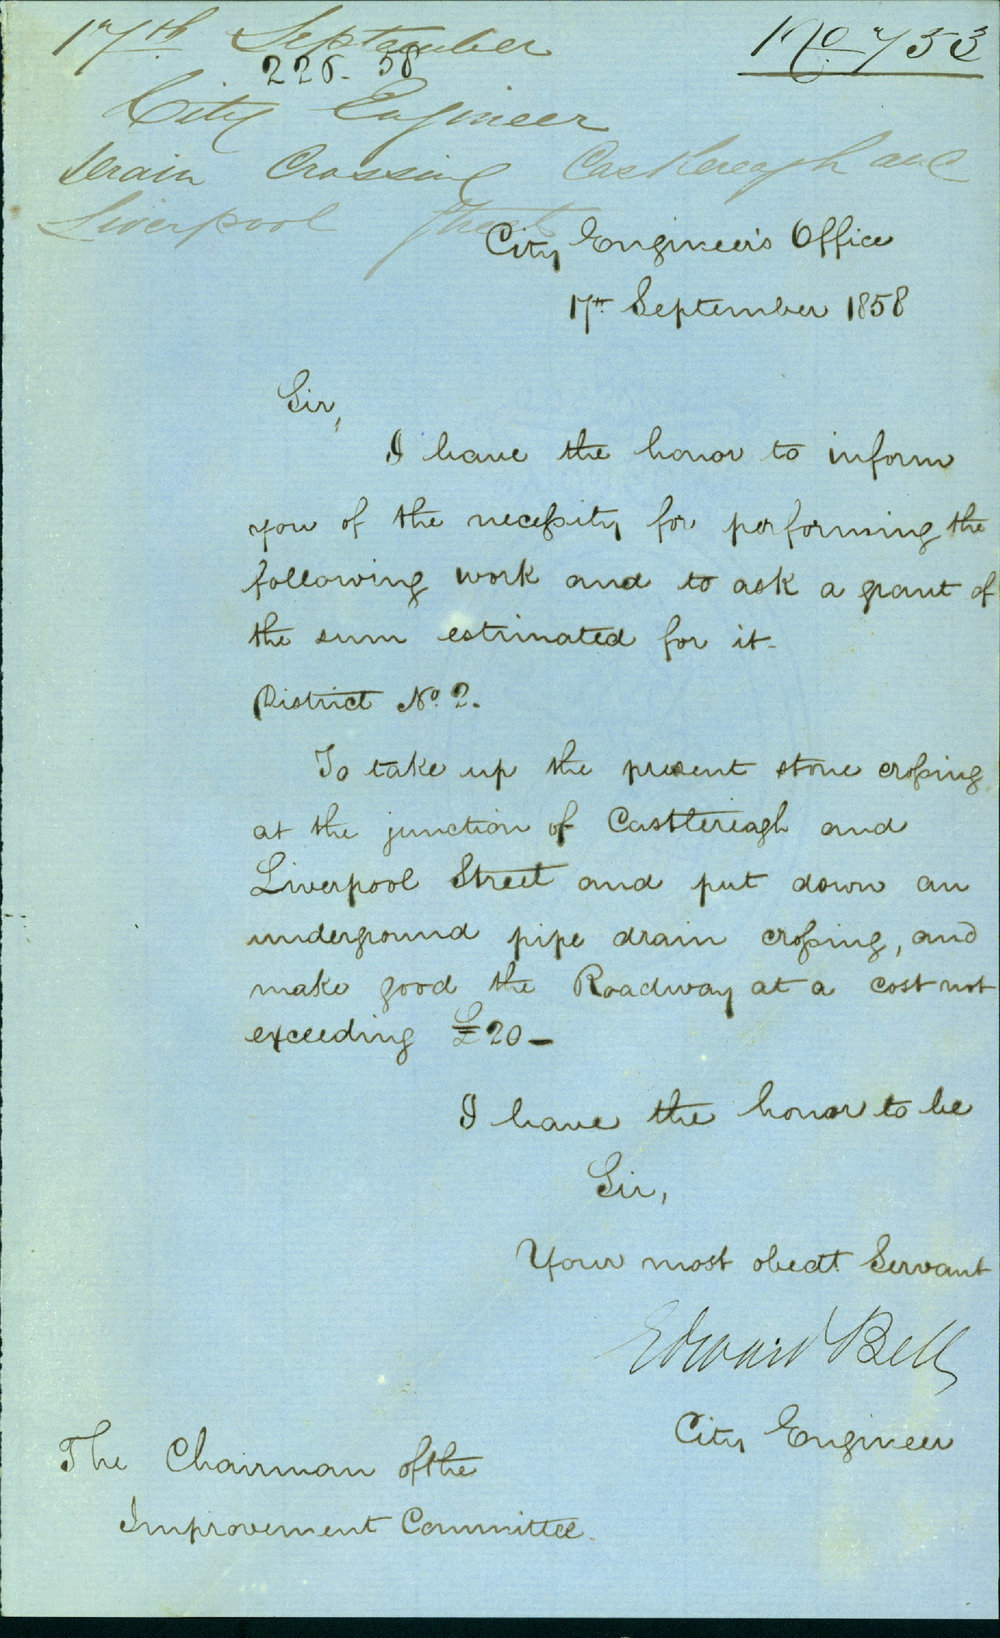 17th September
No 753
226. 58
City Engineer
Drain Crossing Castlereagh and
Liverpool Streets
City Engineer's Office
17th September 1858
Sir,
I have the honor to inform
you of the necessity for performing the
following work and to ask a grant of
the sum estimated for it.
District No. 2.
To take up the present stone crossing
at the junction of Castlereagh and
Liverpool Street and put down an
underground pipe drain crossing, and
make good the Roadway at a cost not
exceeding £20—
I have the honor to be
Sir,
Your most obedt Servant
Edward Bell
City Engineer
The Chairman of the
Improvement Committee.